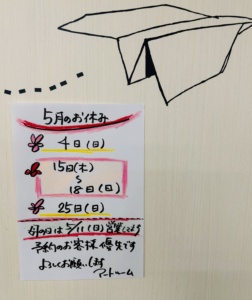 5月のお休み
4日(日)
15日(木)
〜
18日(日)
25日(日)
母の日は5/11(日)営業してます
予約のお客様優先です
よろしくお願いします
アートルーム